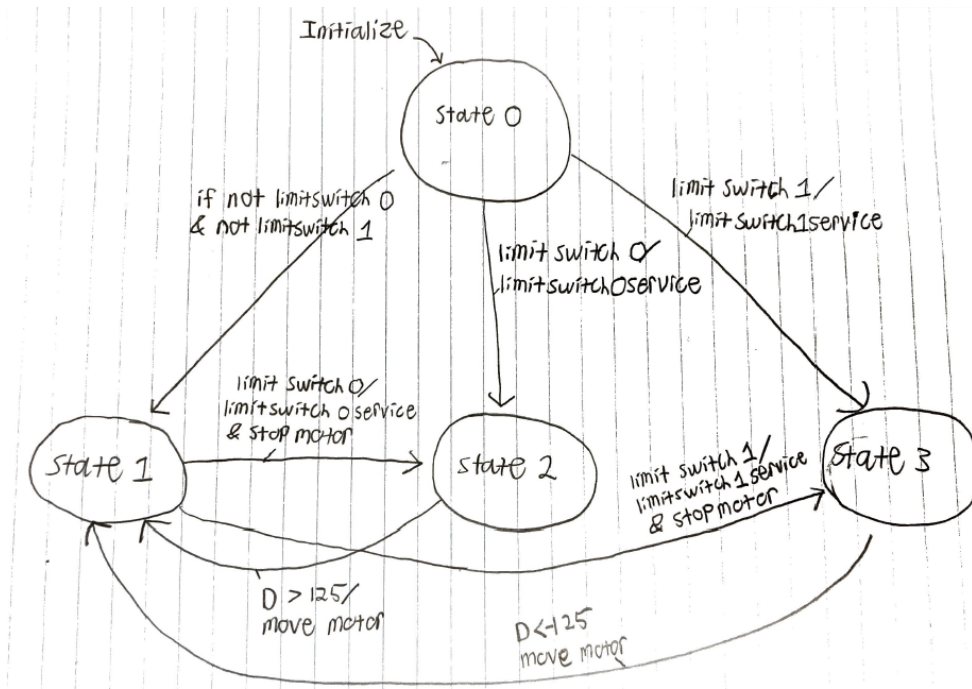 Initialize
State 0
if not limitswitch 0
& not limitswitch 1
limit switch 0/
limitswitch0service
limit switch 1/
limitswitch1service
limit switch 0/
limitswitch 0 service
& stop motor
State 1
State 2
limit switch 1/
limitswitch 1 service
& stop motor
State 3
D > 125/
move motor
D<-125
move motor